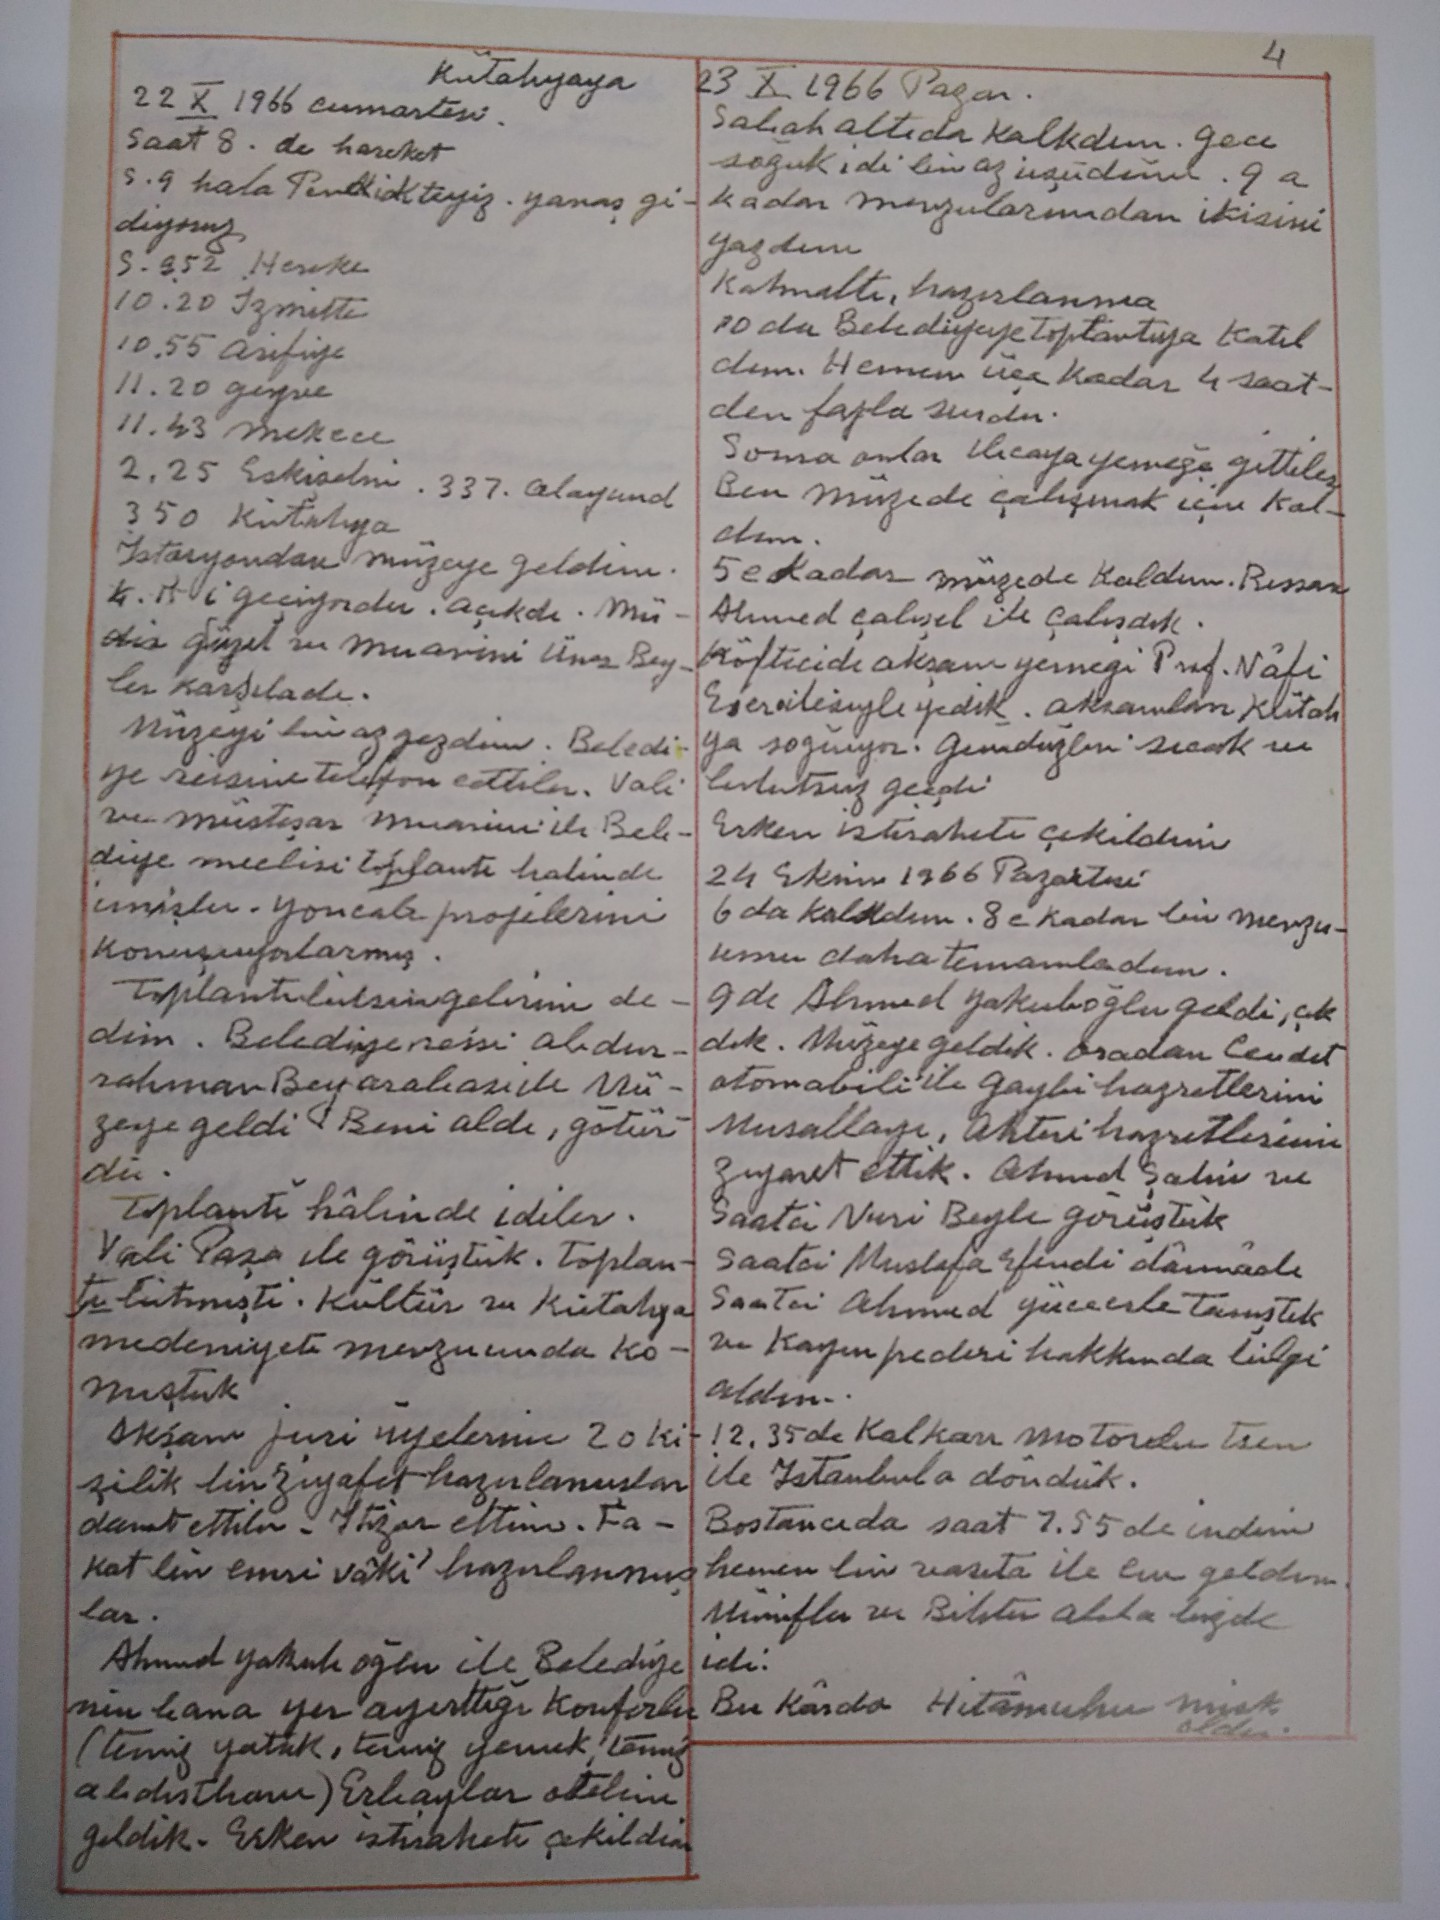 4
Kütahyaya
22 X 1966 cumartesi.
Saat 8. de hareket
S. 9 hala Pendikteyiz. yavaş gi-
diyoruz
S. 9.52 Hereke
10.20 İzmitte
10.55 Arifiye
11.20 geyve
11.43 mekece
2.25 Eskişehir. 337. alayund
350 Kütahya
İstasyondan müzeye geldim.
4. ü geçiyordu. açıkdı. Mü-
dür güzel ve muavini Bey-
ler karşıladı.
Müzeyi bir az gezdim. Beledi-
ye reisine telefon ettiler. Vali
ve müsteşar muavini ile Bele-
diye meclisi toplantı halinde
imişler. yoncalı projelerini
konuşuyorlarmış.
Toplantı bitsin gelirim de-
dim. Belediye reisi abdur-
rahman Bey arabasile Mü-
zeye geldi Beni aldı, götür-
dü.
Toplantı hâlinde idiler.
Vali Paşa ile görüştük. Toplan-
tı bitmişti. Kültür ve Kütahya
medeniyeti mevzuunda ko-
nuştuk
Akşam juri üyelerine 20 ki-
şilik bir ziyafet hazırlamışlar
davet ettiler. İtizar ettim. Fa-
kat bir emri vâki' hazırlanmış
lar.
Ahmed yakuboğlu ile Belediye
nin bana yer ayırttığı konforlu
(temiz yatak, temiz yemek, temiz
abdesthane) Erbaylar oteline
geldik. Erken istirahete çekildim
23 X 1966 Pazar.
Sabah altıda kalkdım. gece
soğuk idi bir az üşüdüm. 9 a
kadar mevzularımdan ikisini
yazdım
Kahvaltı, hazırlanma
10 da Belediyeye toplantıya katıl
dım. Hemen üçe kadar 4 saat-
den fazla sürdü.
Sonra onlar ılıcaya yemeğe gittiler
Ben müzede çalışmak için kal-
dım.
5 e kadar müzede kaldım. Ressam
Ahmed çalışel ile çalışdık.
Köftecide akşam yemeği Prof. Nâfi
yedik. akşamları Kütah
ya soğuyor. Gündüzleri sıcak ve
bulutsuz geçdi
Erken istirahete çekildim
24 Ekim 1966 Pazartesi
6 da kalkdım. 8 e kadar bir mevzu-
umu daha tamamladım.
9 da Ahmed Yakuboğlu geldi, çık
dık. Müzeye geldik. oradan Cevdet
otomobili ile Gaybi hazretlerini
Musallayı, Ahteri hazretlerini
ziyaret ettik. Ahmed Şahin ve
Saatci Nuri Beyle görüştük
Saatci Mustafa Efendi dâmâdı
Saatci Ahmed yüceerle tanıştık
ve kayın pederi hakkında bilgi
aldım.
12.35 de Kalkan motorlu tren
ile İstanbula döndük.
Bostancıda saat 7.55 de indim
hemen bir vasıta ile eve geldim.
Münifler ve abla bizde
idi.
Bu Kârda Hitâmuhu misk
oldu.